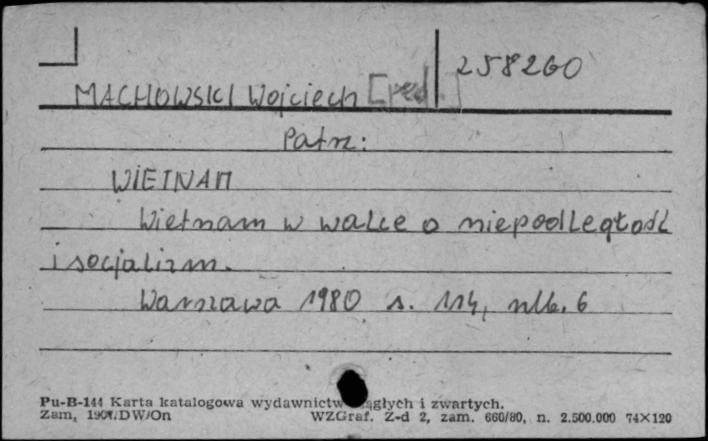 258260
MACHOWSKI Wojciech [red.]
Patrz:
WIETNAM
Wietnam w walce o niepodległość
i socjalizm.
Warszawa 1980 s. 114, nlb. 6
Pu-B-144 Karta katalogowa wydawnictw ciągłych i zwartych.
Zam, DW/On WZGraf. Z-d 2, zam. 660/80, n. 2.500.000 74×120